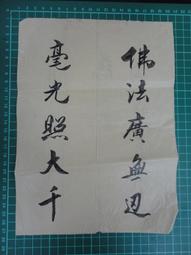 佛法廣無边
毫光照大千